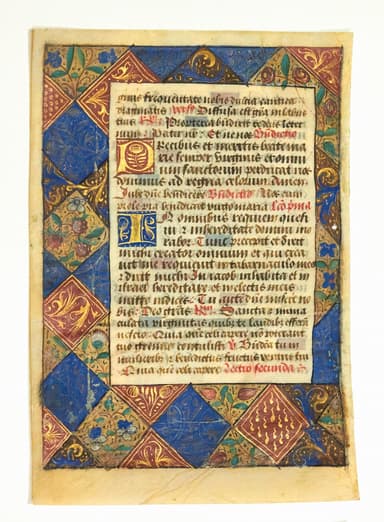 frequentate nobis dulcia cantica
dragmatis Diffusa est gratia in labiis
tuis Propterea
num Et ne nos
Precibus et meritis beate ma
rie semper virginis et omni
um sanctorum perducat nos
dominus ad regna celorum Amen
Jube dne benedicere Benedictio Nos cum
prole pia benedicat virgo maria Lco pma
In omnibus requiem quesi
vi et in hereditate domini mo
rabor. Tunc precepit et dixit
michi creator omnium et qui crea
vit me requievit in tabernaculo meo
et dixit michi In iacob inhabita et in
israel hereditare et in electis meis
mitte radices. Tu aute dne miserere no
bis. Deo gras Sancta et imma
culata virginitas quibus te laudibus
nescio Quia que celi capere non poterant
tuo gremio contulisti Bndicta tu in
mulieribus et benedictus fructus ventris tui
Quia que celi capere Lectio secunda